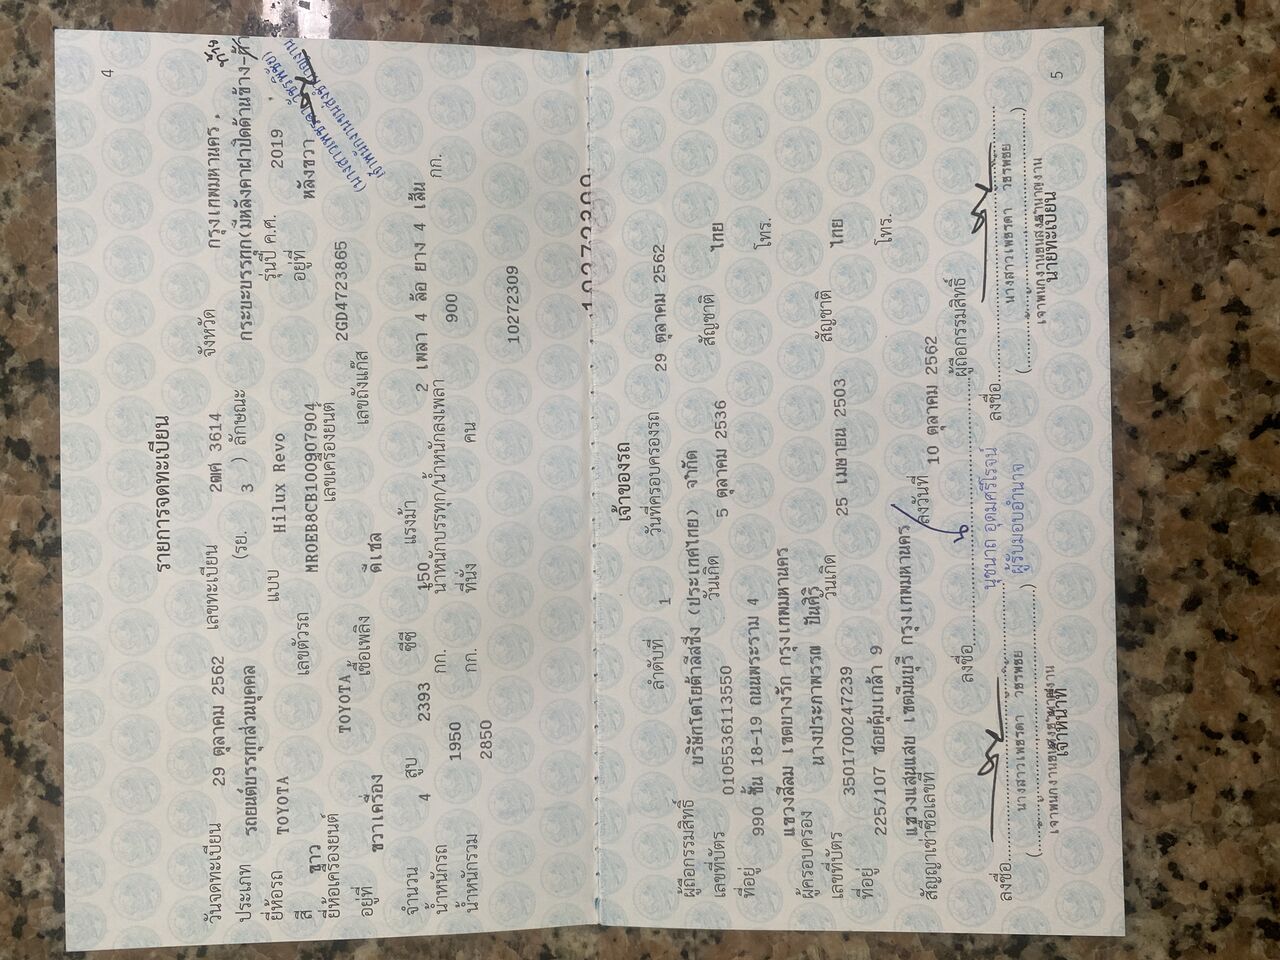 4
รายการจดทะเบียน
วันจดทะเบียน 29 ตุลาคม 2562 เลขทะเบียน 2ฒศ 3614 จังหวัด กรุงเทพมหานคร
ประเภท รถยนต์บรรทุกส่วนบุคคล (รย. 3 ) ลักษณะ กระบะบรรทุก(มีหลังคาฝาปิดด้านข้าง-
ยี่ห้อรถ TOYOTA แบบ Hilux Revo รุ่นปี ค.ศ. 2019
สี ขาว เลขตัวรถ MR0EB8CB100907904 อยู่ที่ หลังขวา
ยี่ห้อเครื่องยนต์ TOYOTA เลขเครื่องยนต์ 2GD4723865
อยู่ที่ ขวาเครื่อง เชื้อเพลิง ดีเซล เลขถังแก๊ส
จำนวน 4 สูบ 2393 ซีซี 150 แรงม้า 2 เพลา 4 ล้อ ยาง 4 เส้น
น้ำหนักรถ 1950 กก. น้ำหนักบรรทุก/น้ำหนักลงเพลา 900 กก.
น้ำหนักรวม 2850 กก. ที่นั่ง คน
10272309
เจ้าของรถ
ลำดับที่ 1 วันที่ครอบครองรถ 29 ตุลาคม 2562
ผู้ถือกรรมสิทธิ์ บริษัทโตโยต้าลีสซิ่ง (ประเทศไทย) จำกัด
เลขที่บัตร 0105536113550 วันเกิด 5 ตุลาคม 2536 สัญชาติ ไทย
ที่อยู่ 990 ชั้น 18-19 ถนนพระราม 4 โทร.
แขวงสีลม เขตบางรัก กรุงเทพมหานคร
ผู้ครอบครอง นางประภาพรรณ ปั้นศิริ
เลขที่บัตร 3501700247239 วันเกิด 25 เมษายน 2503 สัญชาติ ไทย
ที่อยู่ 225/107 ซอยคุ้มเกล้า 9 โทร.
แขวงแสนแสบ เขตมีนบุรี กรุงเทพมหานคร
สัญญาเช่าซื้อเลขที่ ลงวันที่ 10 ตุลาคม 2562
ลงชื่อ ผู้ถือกรรมสิทธิ์
นุชนาถ อุดมศรีโรจน์
ผู้รับมอบอำนาจ
ลงชื่อ ลงชื่อ
( นางสาวเพชรดา วชรพชย ) ( นางสาวเพชรดา วชรพชย )
เจ้าหน้าที่ นายทะเบียน
5